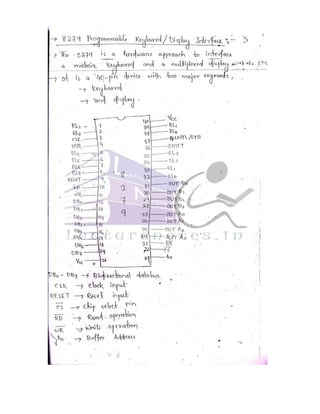 → 8279 Programmable Keyboard/Display Interface :- 3
→ The 8279 is a hardware approach to interface
a matrix keyboard and a multiplexed display with the CPU
→ It is a 40-pin device with two major segments,
→ keyboard
→ and display.
RL2 1 40 Vcc
RL3 2 39 RL1
CLK 3 38 RL0
IRQ 4 37 CNTL/STB
RL4 5 36 SHIFT
RL5 6 35 SL3
RL6 7 34 SL2
RL7 8 33 SL1
RESET 9 32 SL0
RD 10 31 OUT B0
WR 11 30 OUT B1
DB0 12 29 OUT B2
DB1 13 28 OUT B3
DB2 14 27 OUT A0
DB3 15 26 OUT A1
DB4 16 25 OUT A2
DB5 17 24 OUT A3
DB6 18 23 BD
DB7 19 22 CS
Vss 20 21 A0
8
2
7
9
LectureNotes.in
DB0 - DB7 → Bidirectional databus
CLK → clock input
RESET → Reset input
CS → chip select pin
RD → Read operation
WR → write operation
A0 → Buffer Address